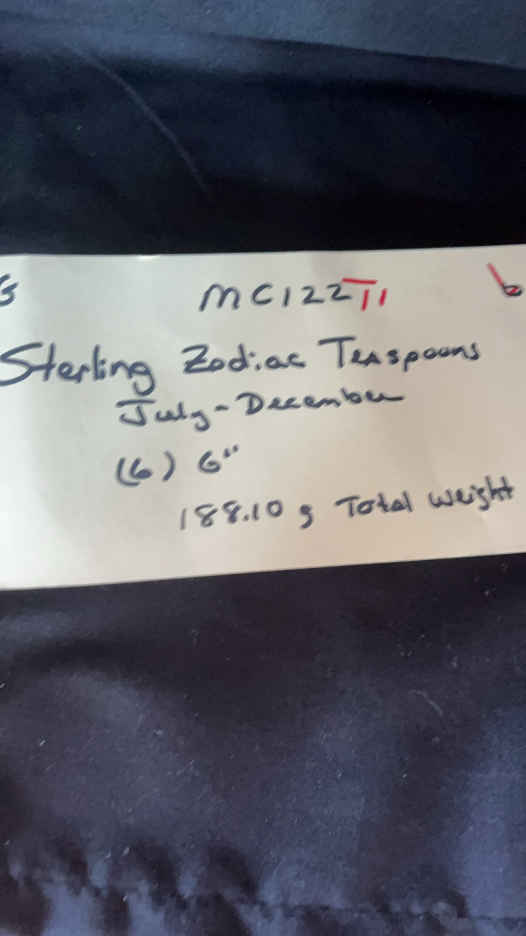 MC122TI
Sterling Zodiac Teaspoons
July - December
(6) 6"
188.10 g Total Weight